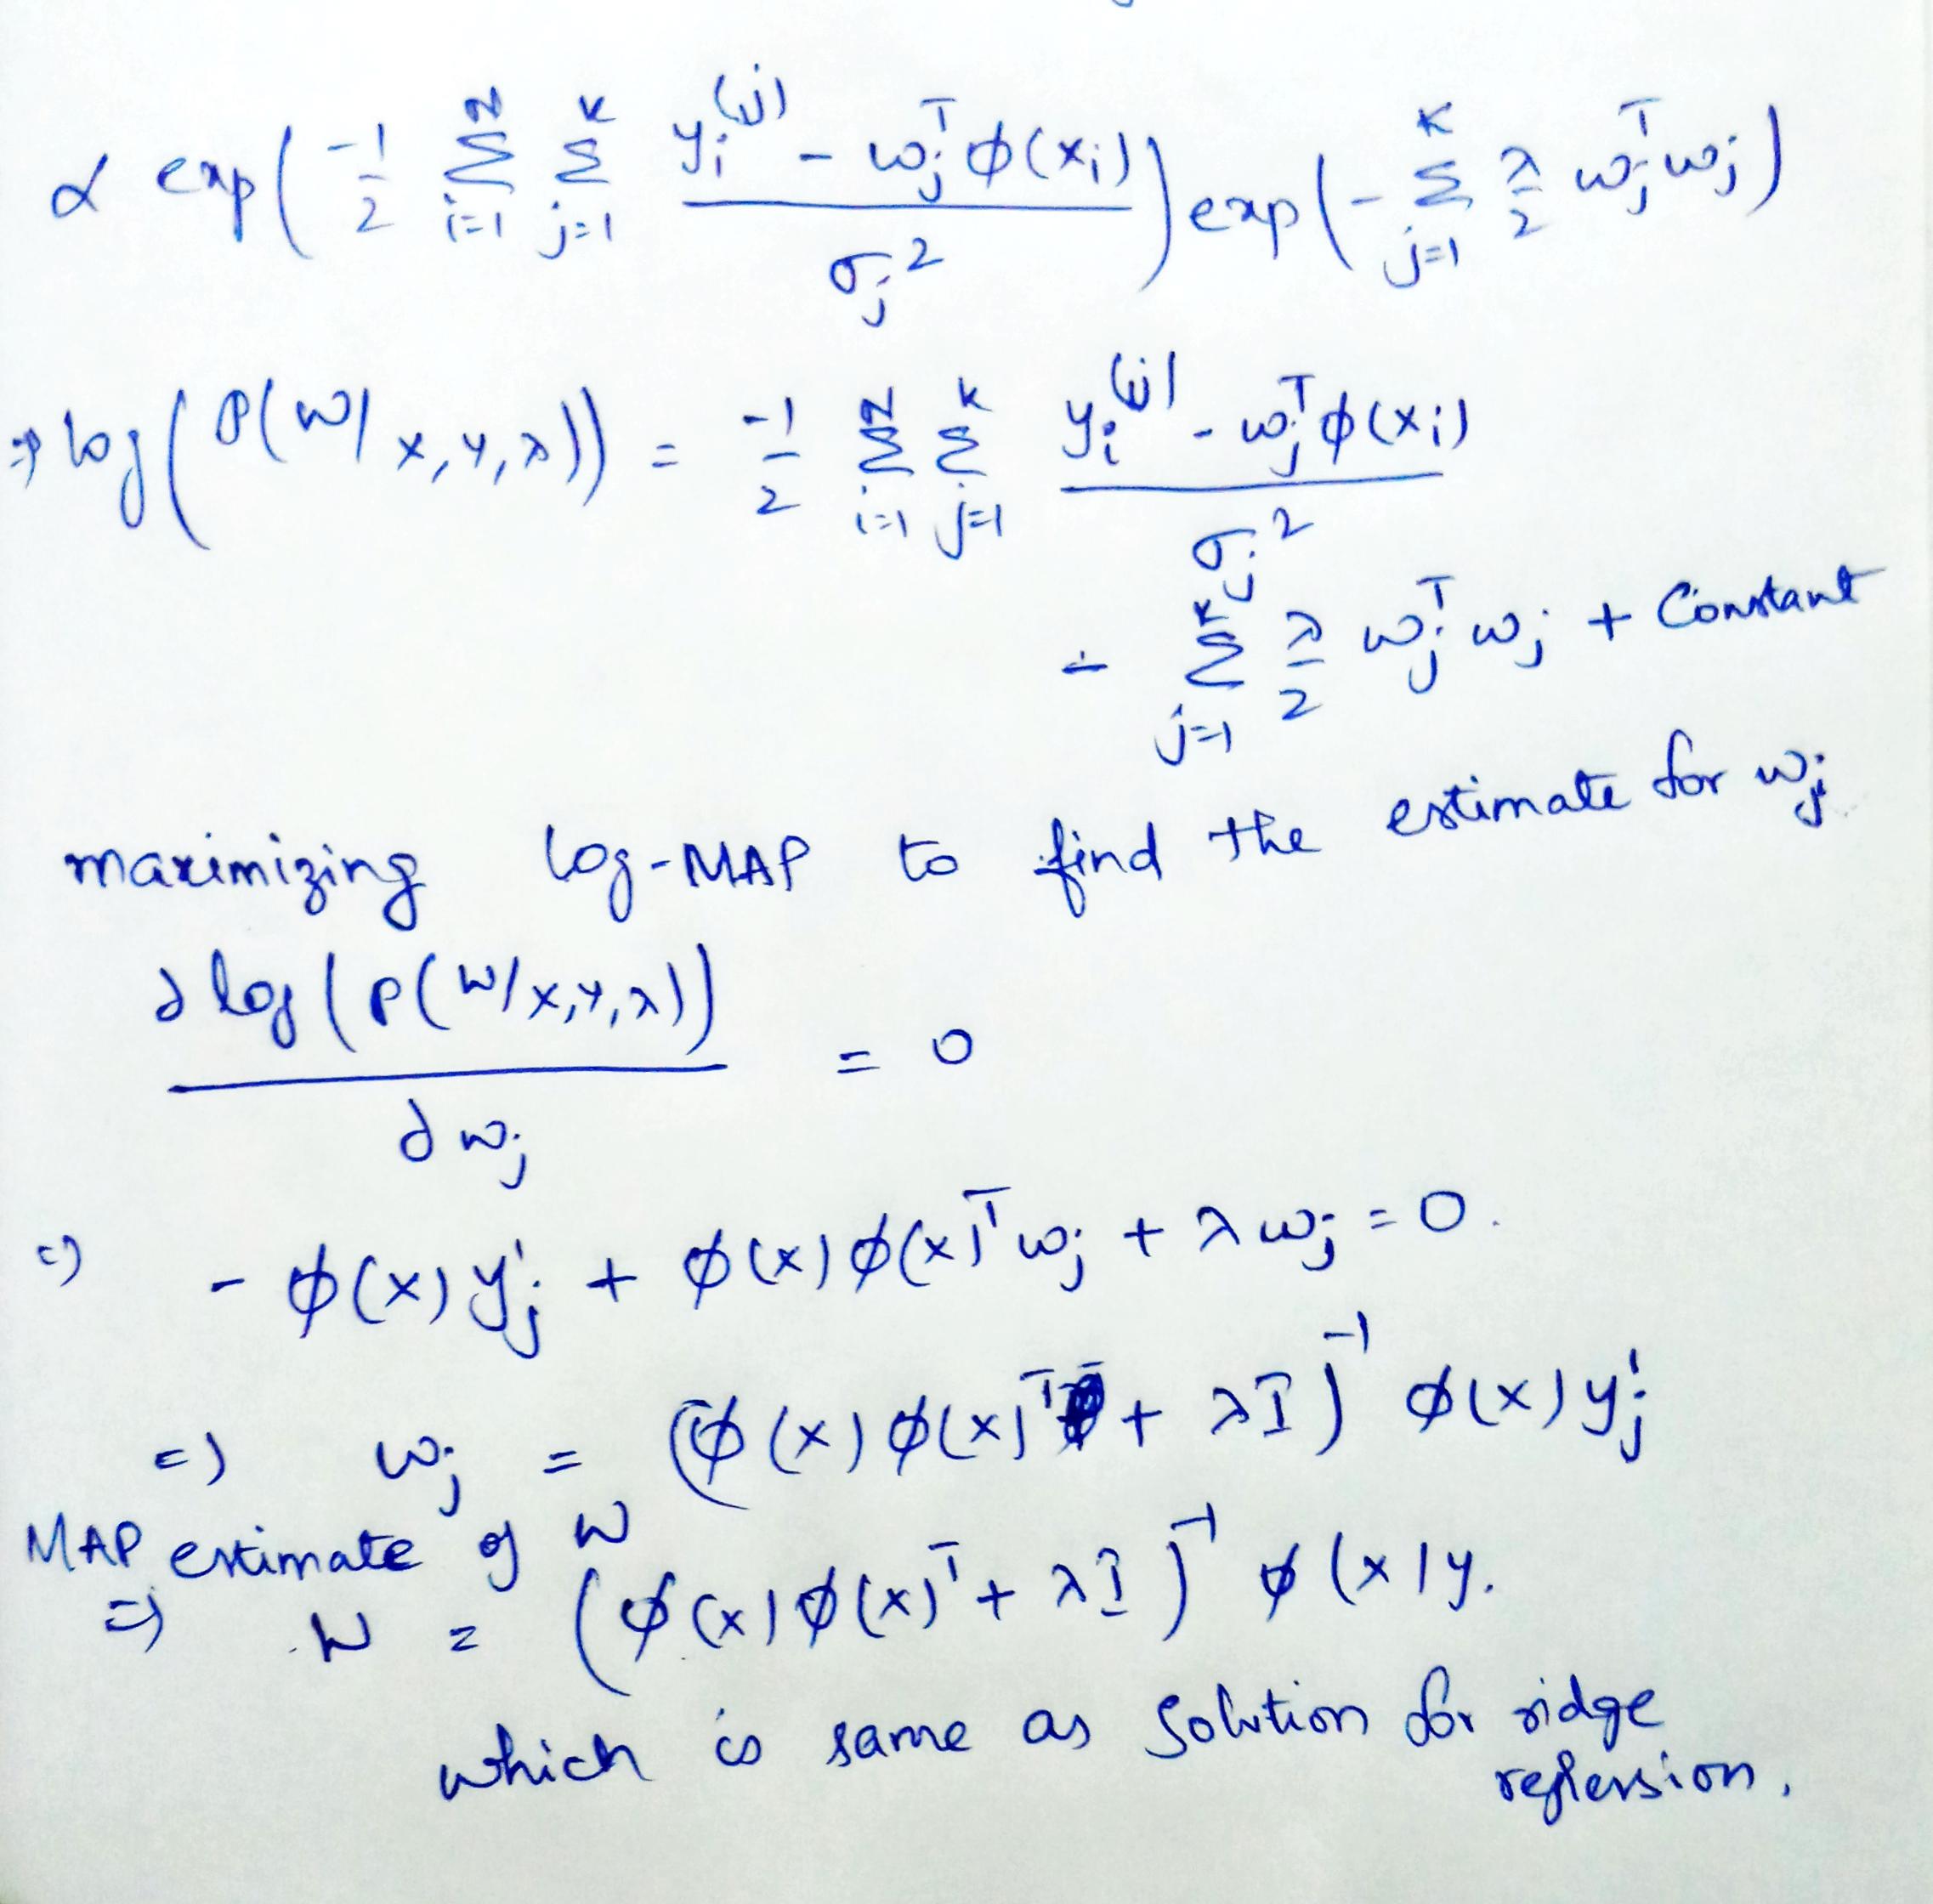 ∝ exp( -1/2 Σ_{i=1}^{N} Σ_{j=1}^{K} (y_i^{(j)} - w_j^T φ(x_i)) / σ_j^2 ) exp( - Σ_{j=1}^{K} λ/2 w_j^T w_j )
⇒ log( P(W/x,y,λ)) = -1/2 Σ_{i=1}^{N} Σ_{j=1}^{K} (y_i^{(j)} - w_j^T φ(x_i)) / σ_j^2
- Σ_{j=1}^{K} λ/2 w_j^T w_j + Constant
maximizing log-MAP to find the estimate for w_j
∂ log ( P( W/x,y,λ)) / ∂ w_j = 0
=) - φ(x) y'_j + φ(x) φ(x)^T w_j + λ w_j = 0.
=) w_j = (φ(x) φ(x)^T + λI)^{-1} φ(x) y'_j
MAP estimate of W
=) W = (φ(x) φ(x)^T + λI)^{-1} φ(x) y.
which is same as solution for ridge
regression.